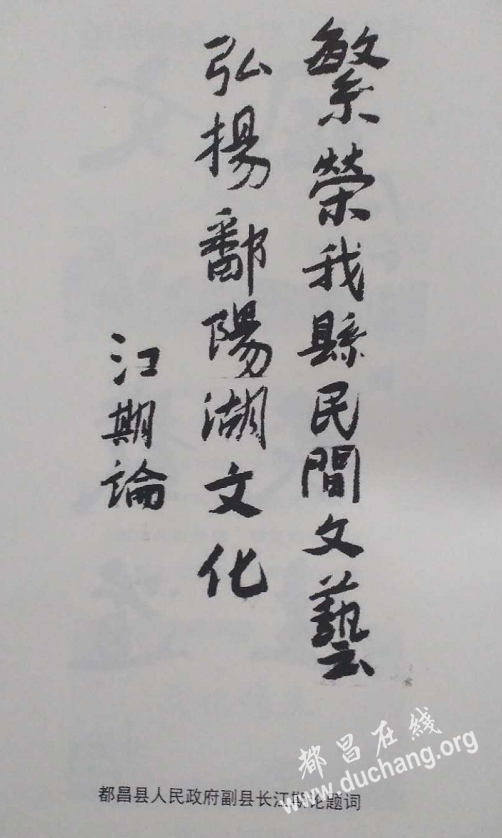 繁榮我縣民間文藝
弘揚鄱陽湖文化
江期論
都昌在线
www.duchang.org
都昌县人民政府副县长江期论题词